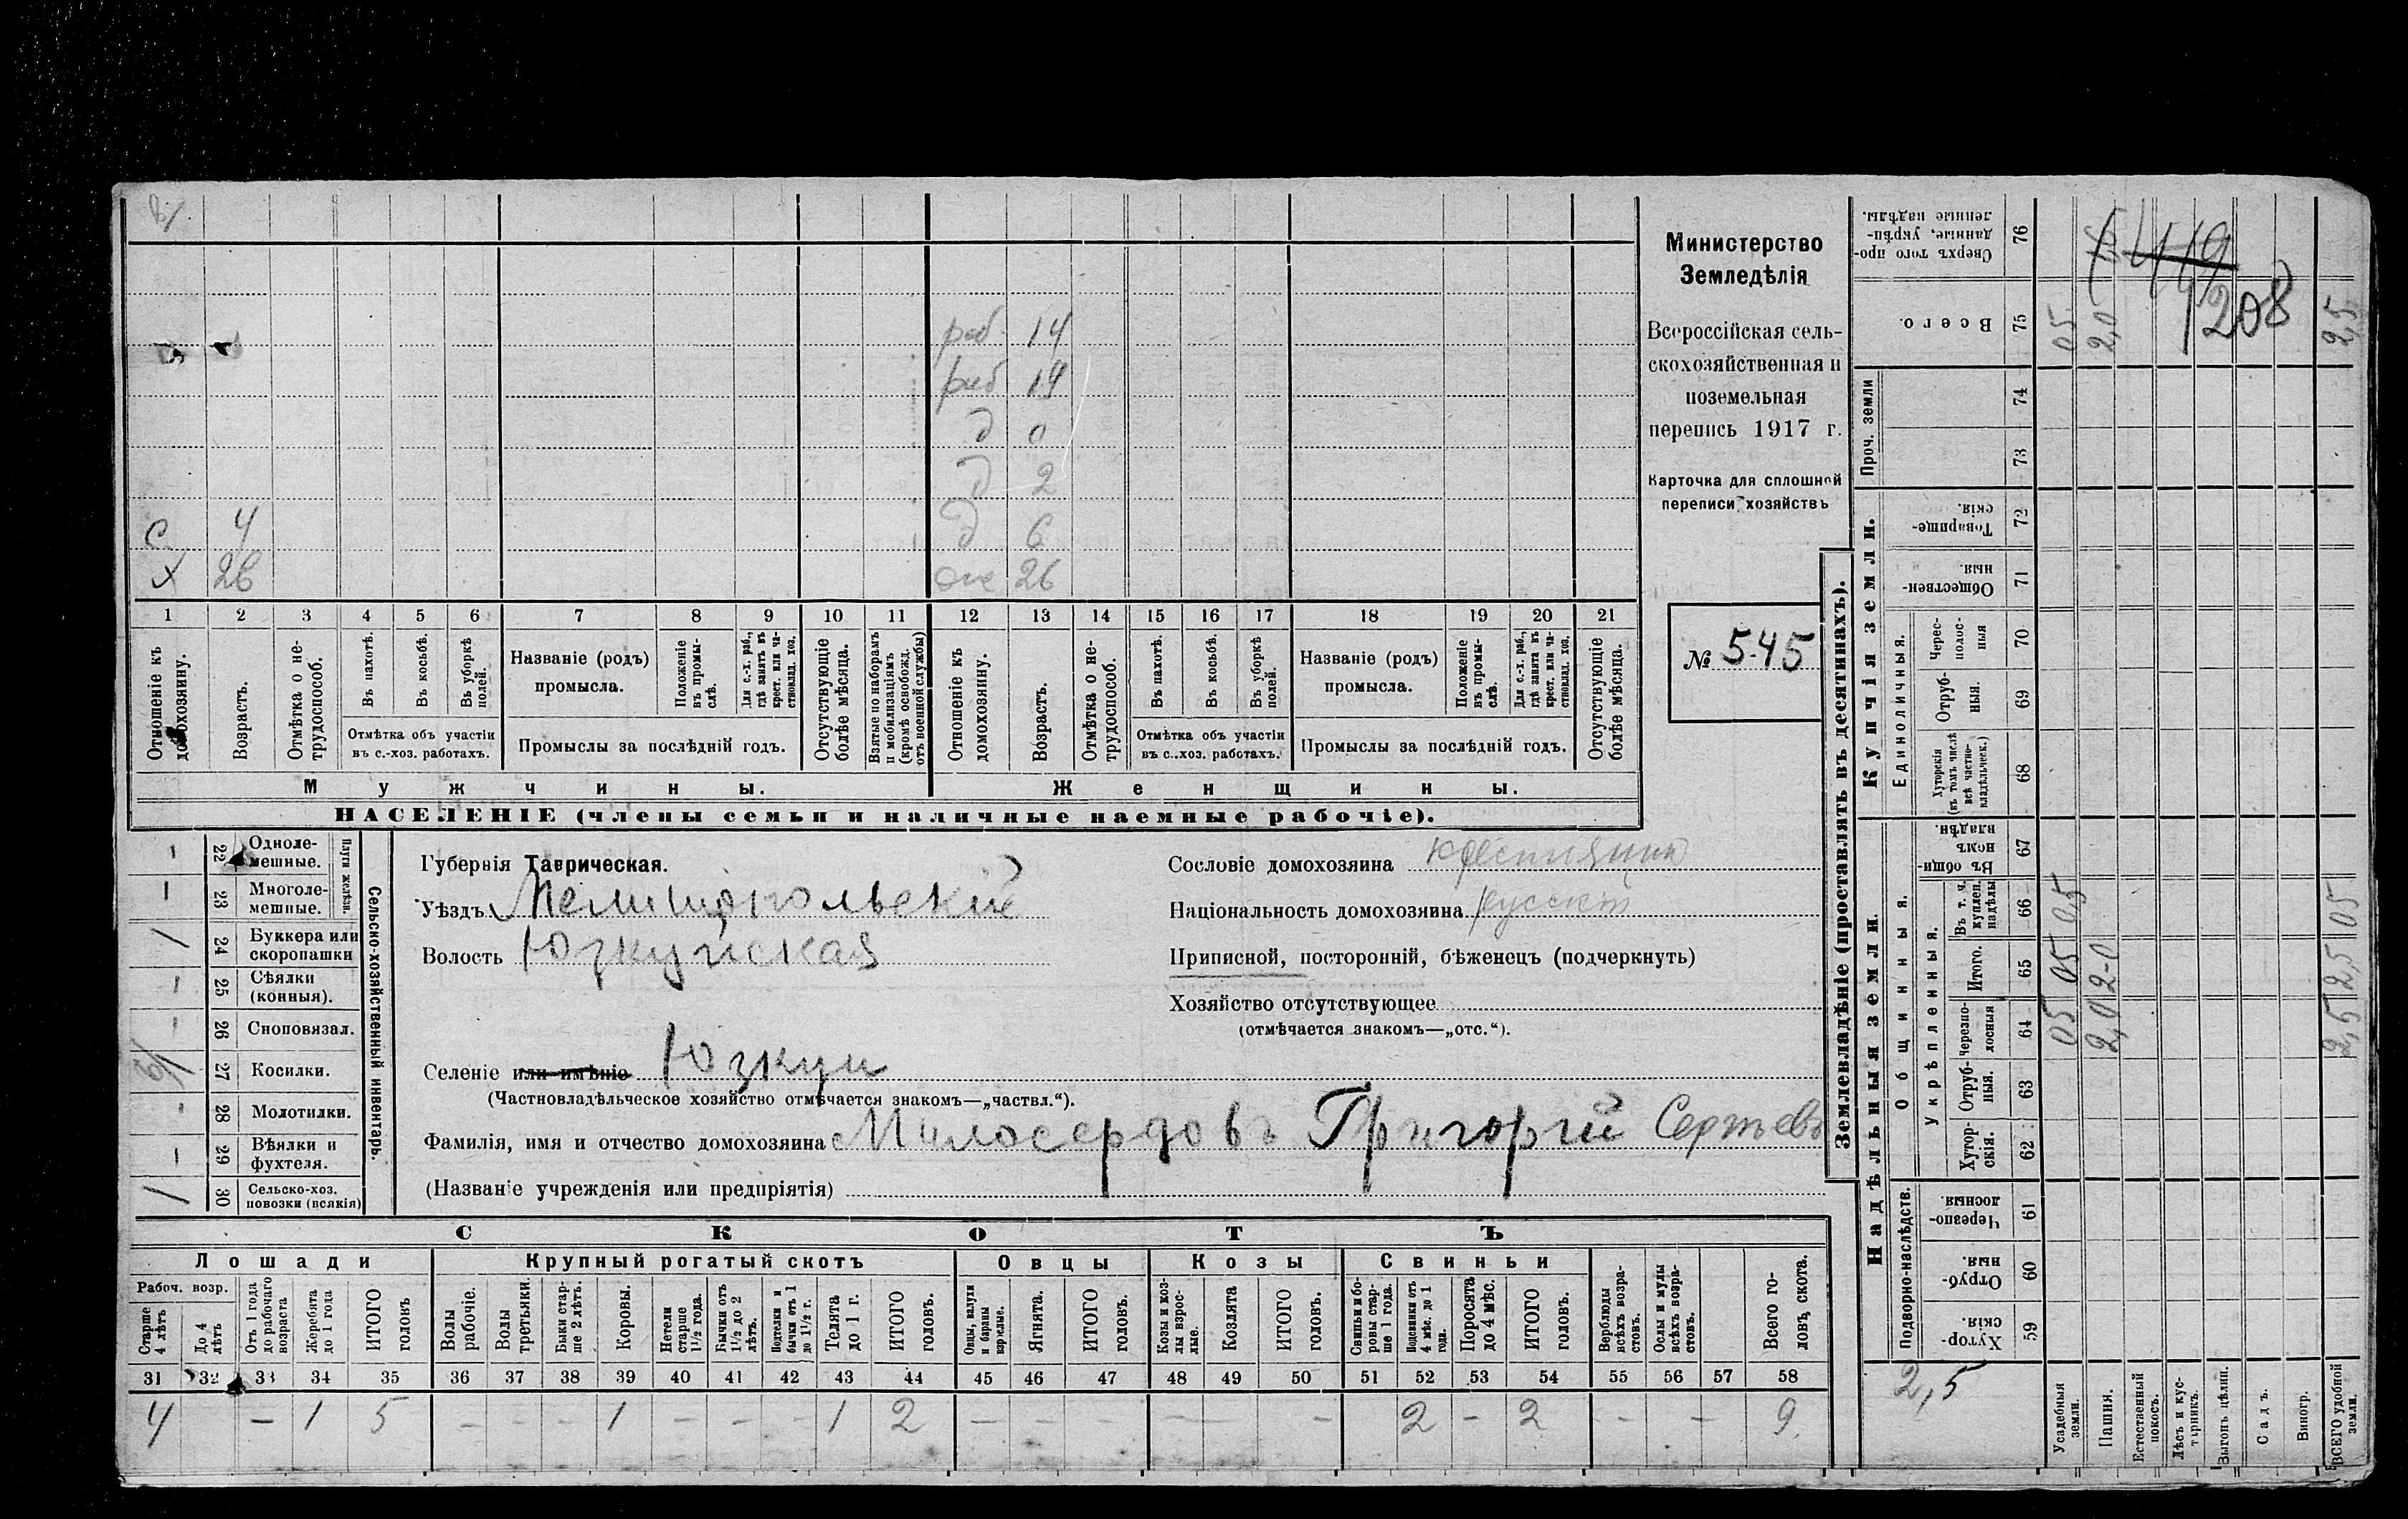 раб 14
раб 19
д 0
д 2
С 4 д 6
Х 26 26
1 2 3 4 5 6 7 8 9 10 11 12 13 14 15 16 17 18 19 20 21
Отношеніе къ домохозяину.
Возрастъ.
Отмѣтка о не-трудоспособ.
Въ пахотѣ.
Въ косьбѣ.
Въ уборкѣ полей.
Отмѣтка объ участіи въ с.-хоз. работахъ.
Названіе (родъ) промысла.
Положеніе въ промы-слѣ.
Для с.-х. раб., гдѣ занятъ въ крест. или ча-стновлад. хоз.
Промыслы за послѣдній годъ.
Отсутствующіе болѣе мѣсяца.
Взятые по наборамъ и мобилизаціямъ (кромѣ освобожд. отъ военной службы)
Отношеніе къ домохозяину.
Возрастъ.
Отмѣтка о не-трудоспособ.
Въ пахотѣ.
Въ косьбѣ.
Въ уборкѣ полей.
Отмѣтка объ участіи въ с..хоз. работахъ.
Названіе (родъ) промысла.
Положеніе въ промы-слѣ.
Для с.-х. раб., гдѣ занята въ крест. или ча-стновлад. хоз.
Промыслы за послѣдній годъ.
Отсутствующіе болѣе мѣсяца.
Мужчины. Женщины.
НАСЕЛЕНІЕ (члены семьи и наличные наемные рабочіе).
Министерство
Земледѣлія
Всероссійская сель-
скохозяйственная и
поземельная
перепись 1917 г.
Карточка для сплошной
переписи хозяйствъ
№ 545
22 Одноле-мешные.
23 Многоле-мешные.
Плуги желѣзн.
24 Буккера или скоропашки
25 Сѣялки (конныя).
26 Сноповязал.
27 Косилки.
28 Молотилки.
29 Вѣялки и фухтеля.
30 Сельско-хоз. повозки (всякія)
Сельско-хозяйственный инвентарь.
Губернія Таврическая.
Уѣздъ Мелитопольскій
Волость Юзкуйская
Селеніе или имѣніе Юзкуи
(Частновладѣльческое хозяйство отмѣчается знакомъ—„частвл.“).
Фамилія, имя и отчество домохозяина Милосердовъ Григорій Сергѣевъ
(Названіе учрежденія или предпріятія)
Сословіе домохозяина крестьянинъ
Національность домохозяина русскій
Приписной, посторонній, бѣженецъ (подчеркнуть)
Хозяйство отсутствующее
(отмѣчается знакомъ—„отс.“).
СКОТЪ
Лошади Крупный рогатый скотъ Овцы Козы Свиньи
Рабоч. возр.
Старше 4 лѣтъ
До 4 лѣтъ
Отъ 1 года до рабочаго возраста
Жеребята до 1 года
ИТОГО головъ
Волы рабочіе.
Волы третьяки.
Быки стар-ше 2 лѣтъ.
Коровы.
Нетели старше 1½ года.
Бычки отъ 1½ до 2 лѣтъ.
Подтелки и бычки отъ 1 до 1½ г.
Телята до 1 г.
ИТОГО головъ.
Овцы, валухи и бараны взрослые.
Ягнята.
ИТОГО головъ.
Козы и коз-лы взрос-лые.
Козлята
ИТОГО головъ.
Свиньи и бо-ровы стар-ше 1 года.
Подсвинки отъ 4 мѣс. до 1 года.
Поросята до 4 мѣс.
ИТОГО головъ.
Верблюды всѣхъ возра-стовъ.
Ослы и мулы всѣхъ возра-стовъ.
Всего го-ловъ скота.
31 32 33 34 35 36 37 38 39 40 41 42 43 44 45 46 47 48 49 50 51 52 53 54 55 56 57 58
4 – 1 5 – – – 1 – – – 1 2 – – – – – 2 – 2 – – 9
Землевладѣніе (проставлять въ десятинахъ).
Купчія земли.
Надѣльныя земли.
Проч. земли
Сверхъ того про-данные, укрѣп-ленные надѣлы. 76
Всего. 75
74
73
Товарище-скія. 72
Обществен-ныя. 71
Единоличныя.
Черес-полос-ныя 70
Отруб-ныя. 69
Хуторскія (въ томъ числѣ всѣ частно-владѣльческ.) 68
Общинныя.
Въ общи-номъ владѣн. 67
Укрѣпленныя.
Въ т. ч. куплен. надѣлы 66
Итого. 65
Черезпо-лосныя 64
Отруб-ныя. 63
Хутор-скія. 62
Подворно-наслѣдств.
Черезпо-лосныя. 61
Отруб-ныя. 60
Хутор-скія. 59
2,5
Усадебныя земли.
Пашня.
Естественный покосъ.
Лѣсъ и кус-тарникъ.
Выгонъ цѣлин.
Садъ.
Виногр.
ВСЕГО удобной земли.
05 05 05 05
2,0 2-0 2,0
2,5 2,5 05 2,5
419
208